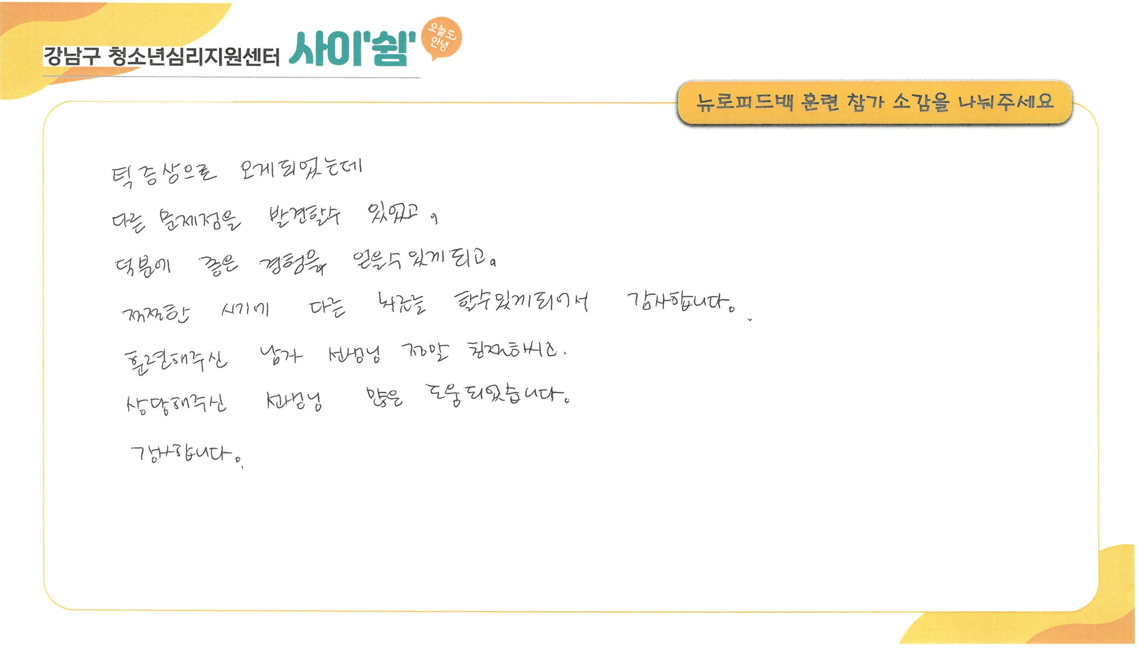 강남구 청소년심리지원센터 사이'쉼' 오늘도 안녕
뉴로피드백 훈련 참가 소감을 나눠주세요
틱증상으로 오게되었는데
다른 문제점을 발견할수 있었고,
덕분에 좋은 경험을 얻을수있게되고,
적절한 시기에 다른 치료를 할수있게되어서 감사합니다.
훈련해주신 남자 선생님 정말 친절하시고.
상담해주신 선생님 많은 도움되었습니다.
감사합니다.